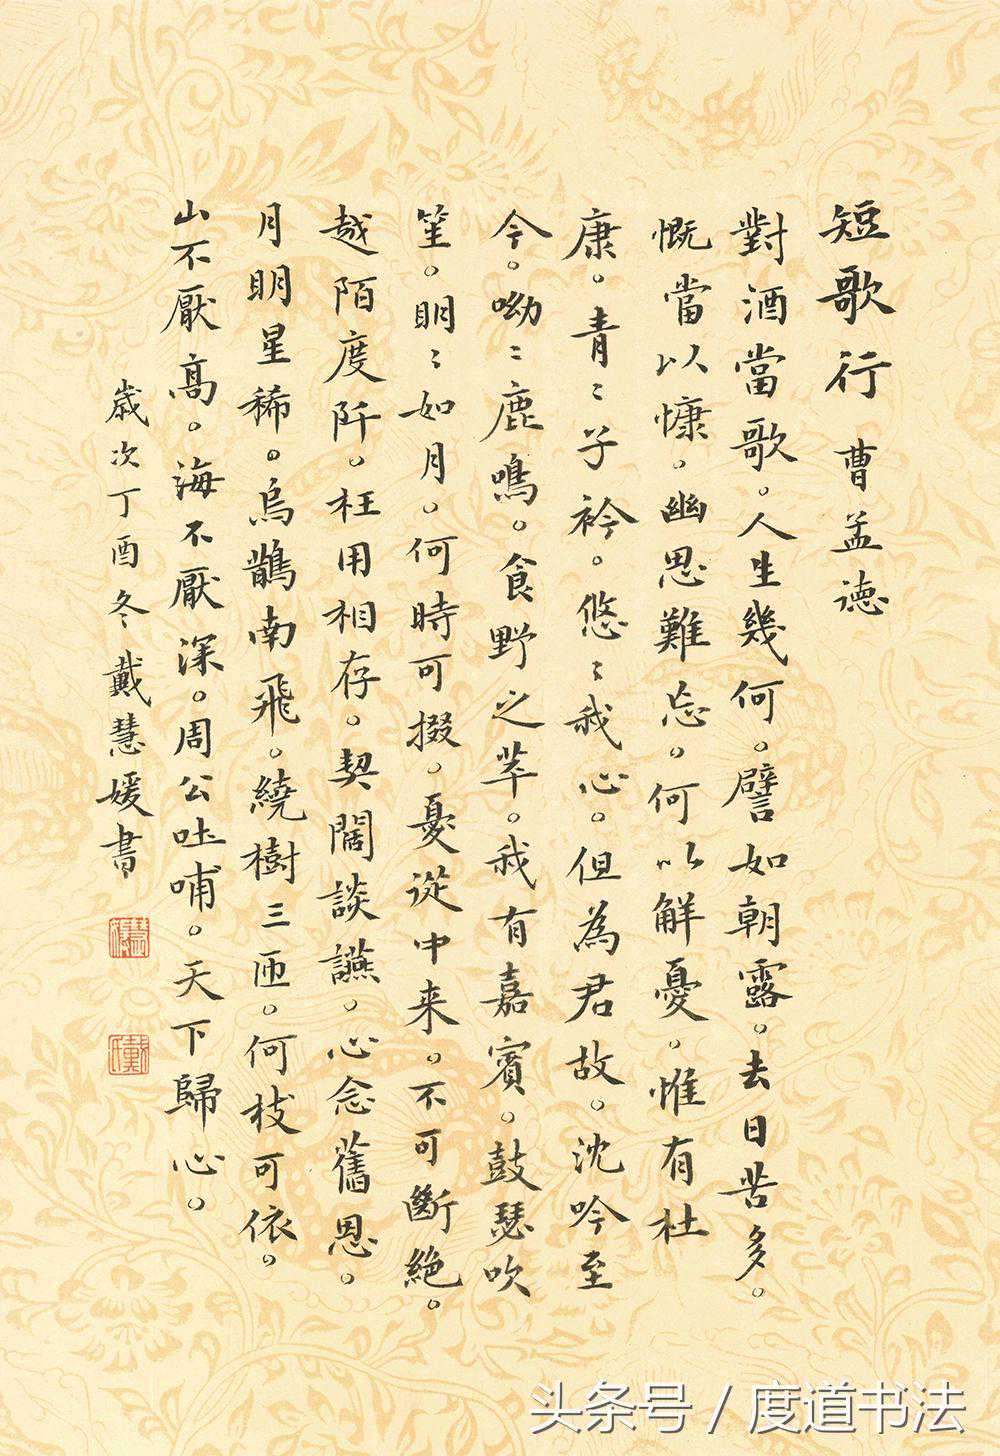 短歌行 曹孟德
對酒當歌。人生幾何。譬如朝露。去日苦多。
慨當以慷。幽思難忘。何以解憂。惟有杜
康。青〻子衿。悠〻我心。但為君故。沈吟至
今。呦〻鹿鳴。食野之苹。我有嘉賓。鼓瑟吹
笙。明〻如月。何時可掇。憂從中来。不可斷絕。
越陌度阡。枉用相存。契闊談讌。心念舊恩。
月明星稀。烏鵲南飛。繞樹三匝。何枝可依。
山不厭高。海不厭深。周公吐哺。天下歸心。
歲次丁酉冬戴慧媛書
头条号 / 度道书法